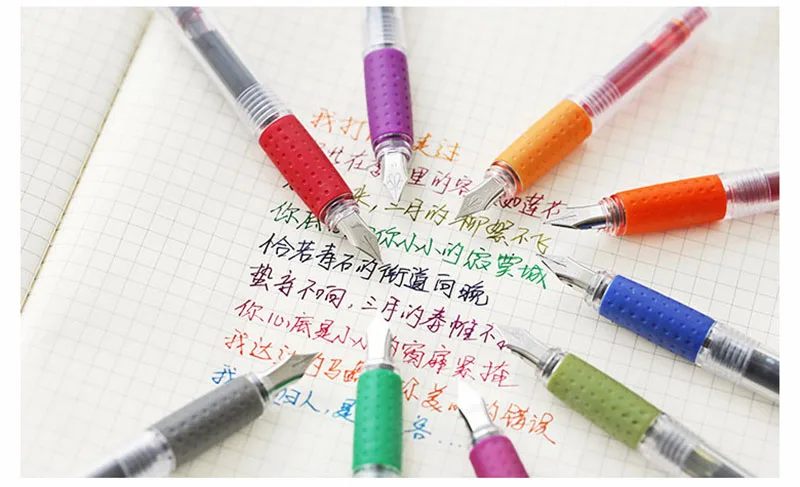 我打 走过
在 里的容 如莲花
来,三月的柳絮不飞
你底 你小小的寂寞城
恰若青石的街道向晚
跫音不响,三月的春帷不
你心底是小小的窗扉紧掩
我达达的马 你美 的错误
我 归人,是 客...